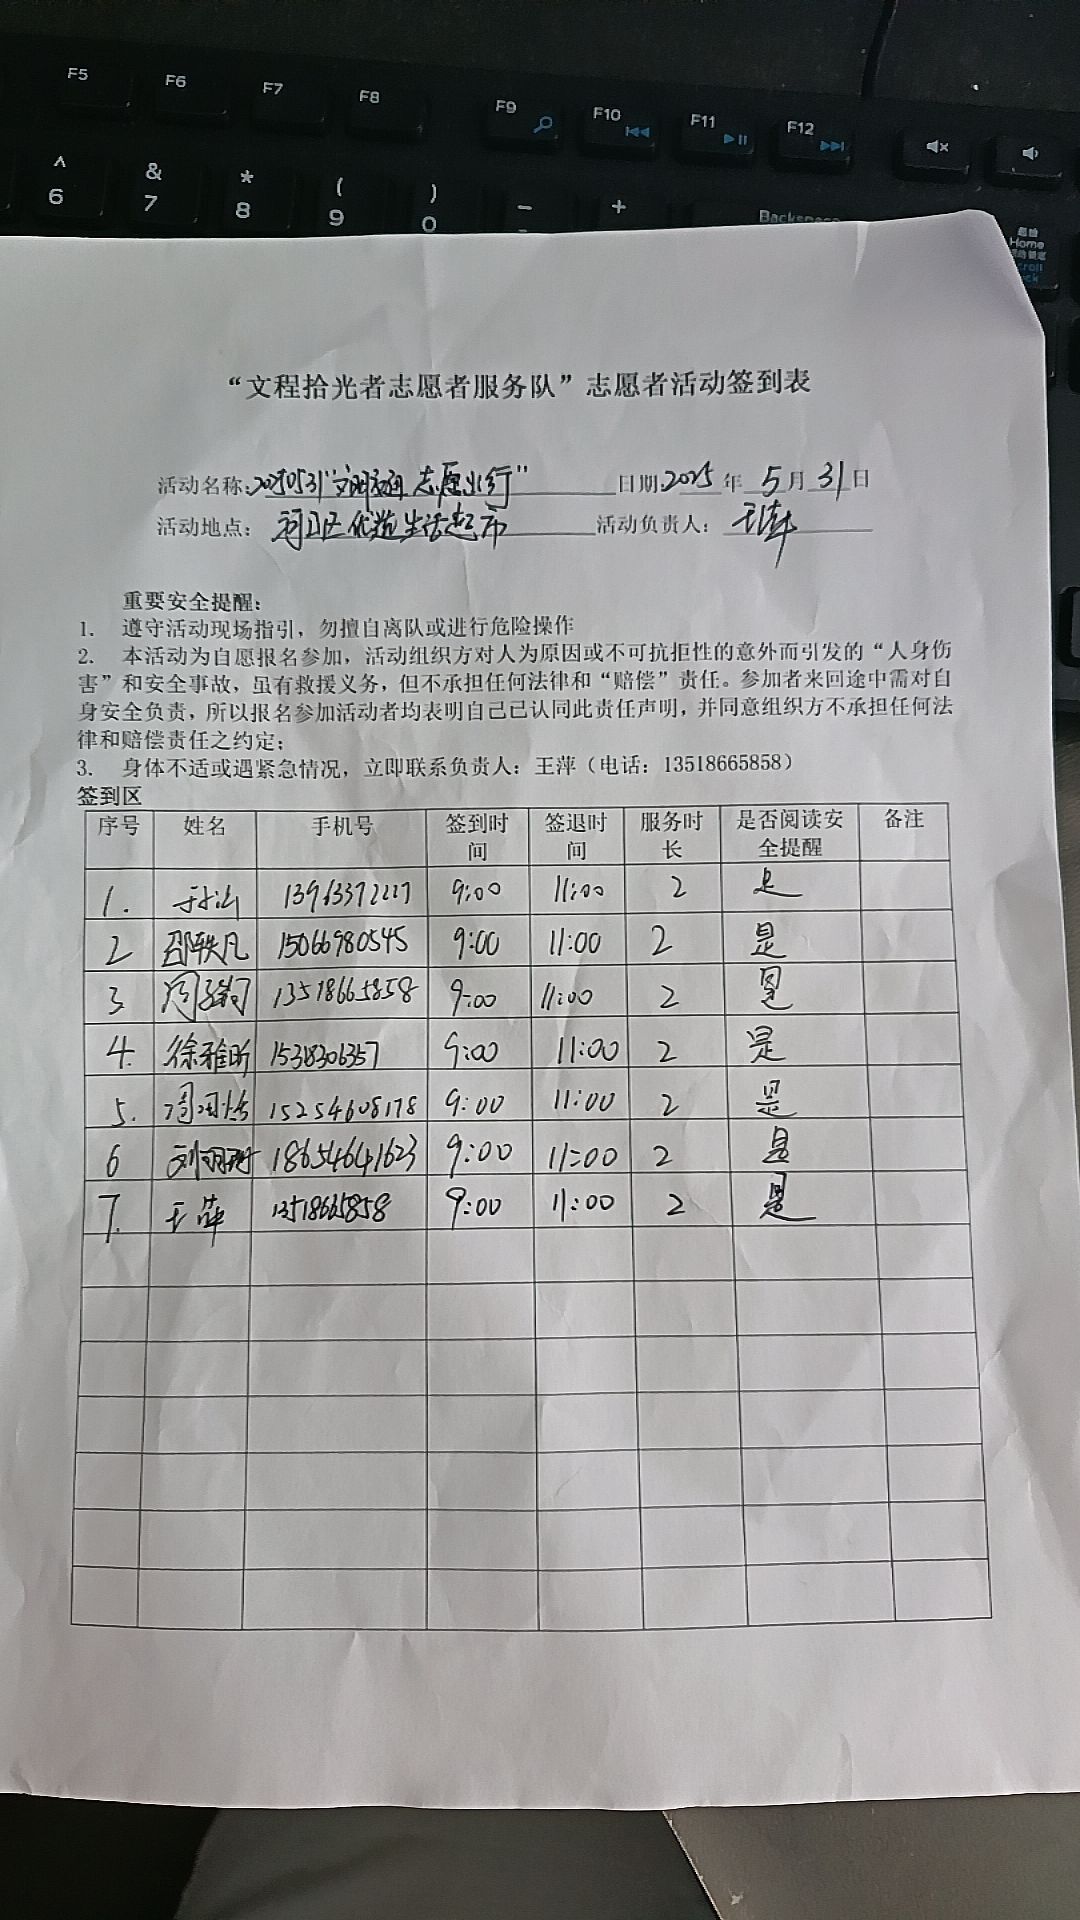 F5 F6 F7 F8 F9 F10 F11 F12
^ & * ( ) _ +
6 7 8 9 0 -
Backspace
Home
“文程拾光者志愿者服务队”志愿者活动签到表
活动名称:20250531“文明 志愿义行” 日期:2025年 5月 31日
活动地点: 河口区优选生活超市 活动负责人: 王萍
重要安全提醒:
1. 遵守活动现场指引，勿擅自离队或进行危险操作
2. 本活动为自愿报名参加，活动组织方对人为原因或不可抗拒性的意外而引发的“人身伤
害”和安全事故，虽有救援义务，但不承担任何法律和“赔偿”责任。参加者来回途中需对自
身安全负责，所以报名参加活动者均表明自己已认同此责任声明，并同意组织方不承担任何法
律和赔偿责任之约定;
3. 身体不适或遇紧急情况，立即联系负责人: 王萍（电话: 13518665858）
签到区
序号 姓名 手机号 签到时间 签退时间 服务时长 是否阅读安全提醒 备注
1. 9:00 11:00 2 是
2 邵轶凡 15066980545 9:00 11:00 2 是
3 13518665858 9:00 11:00 2 是
4. 徐雅昕 9:00 11:00 2 是
5. 15254608178 9:00 11:00 2 是
6 18654641623 9:00 11:00 2 是
7. 王萍 13518665858 9:00 11:00 2 是